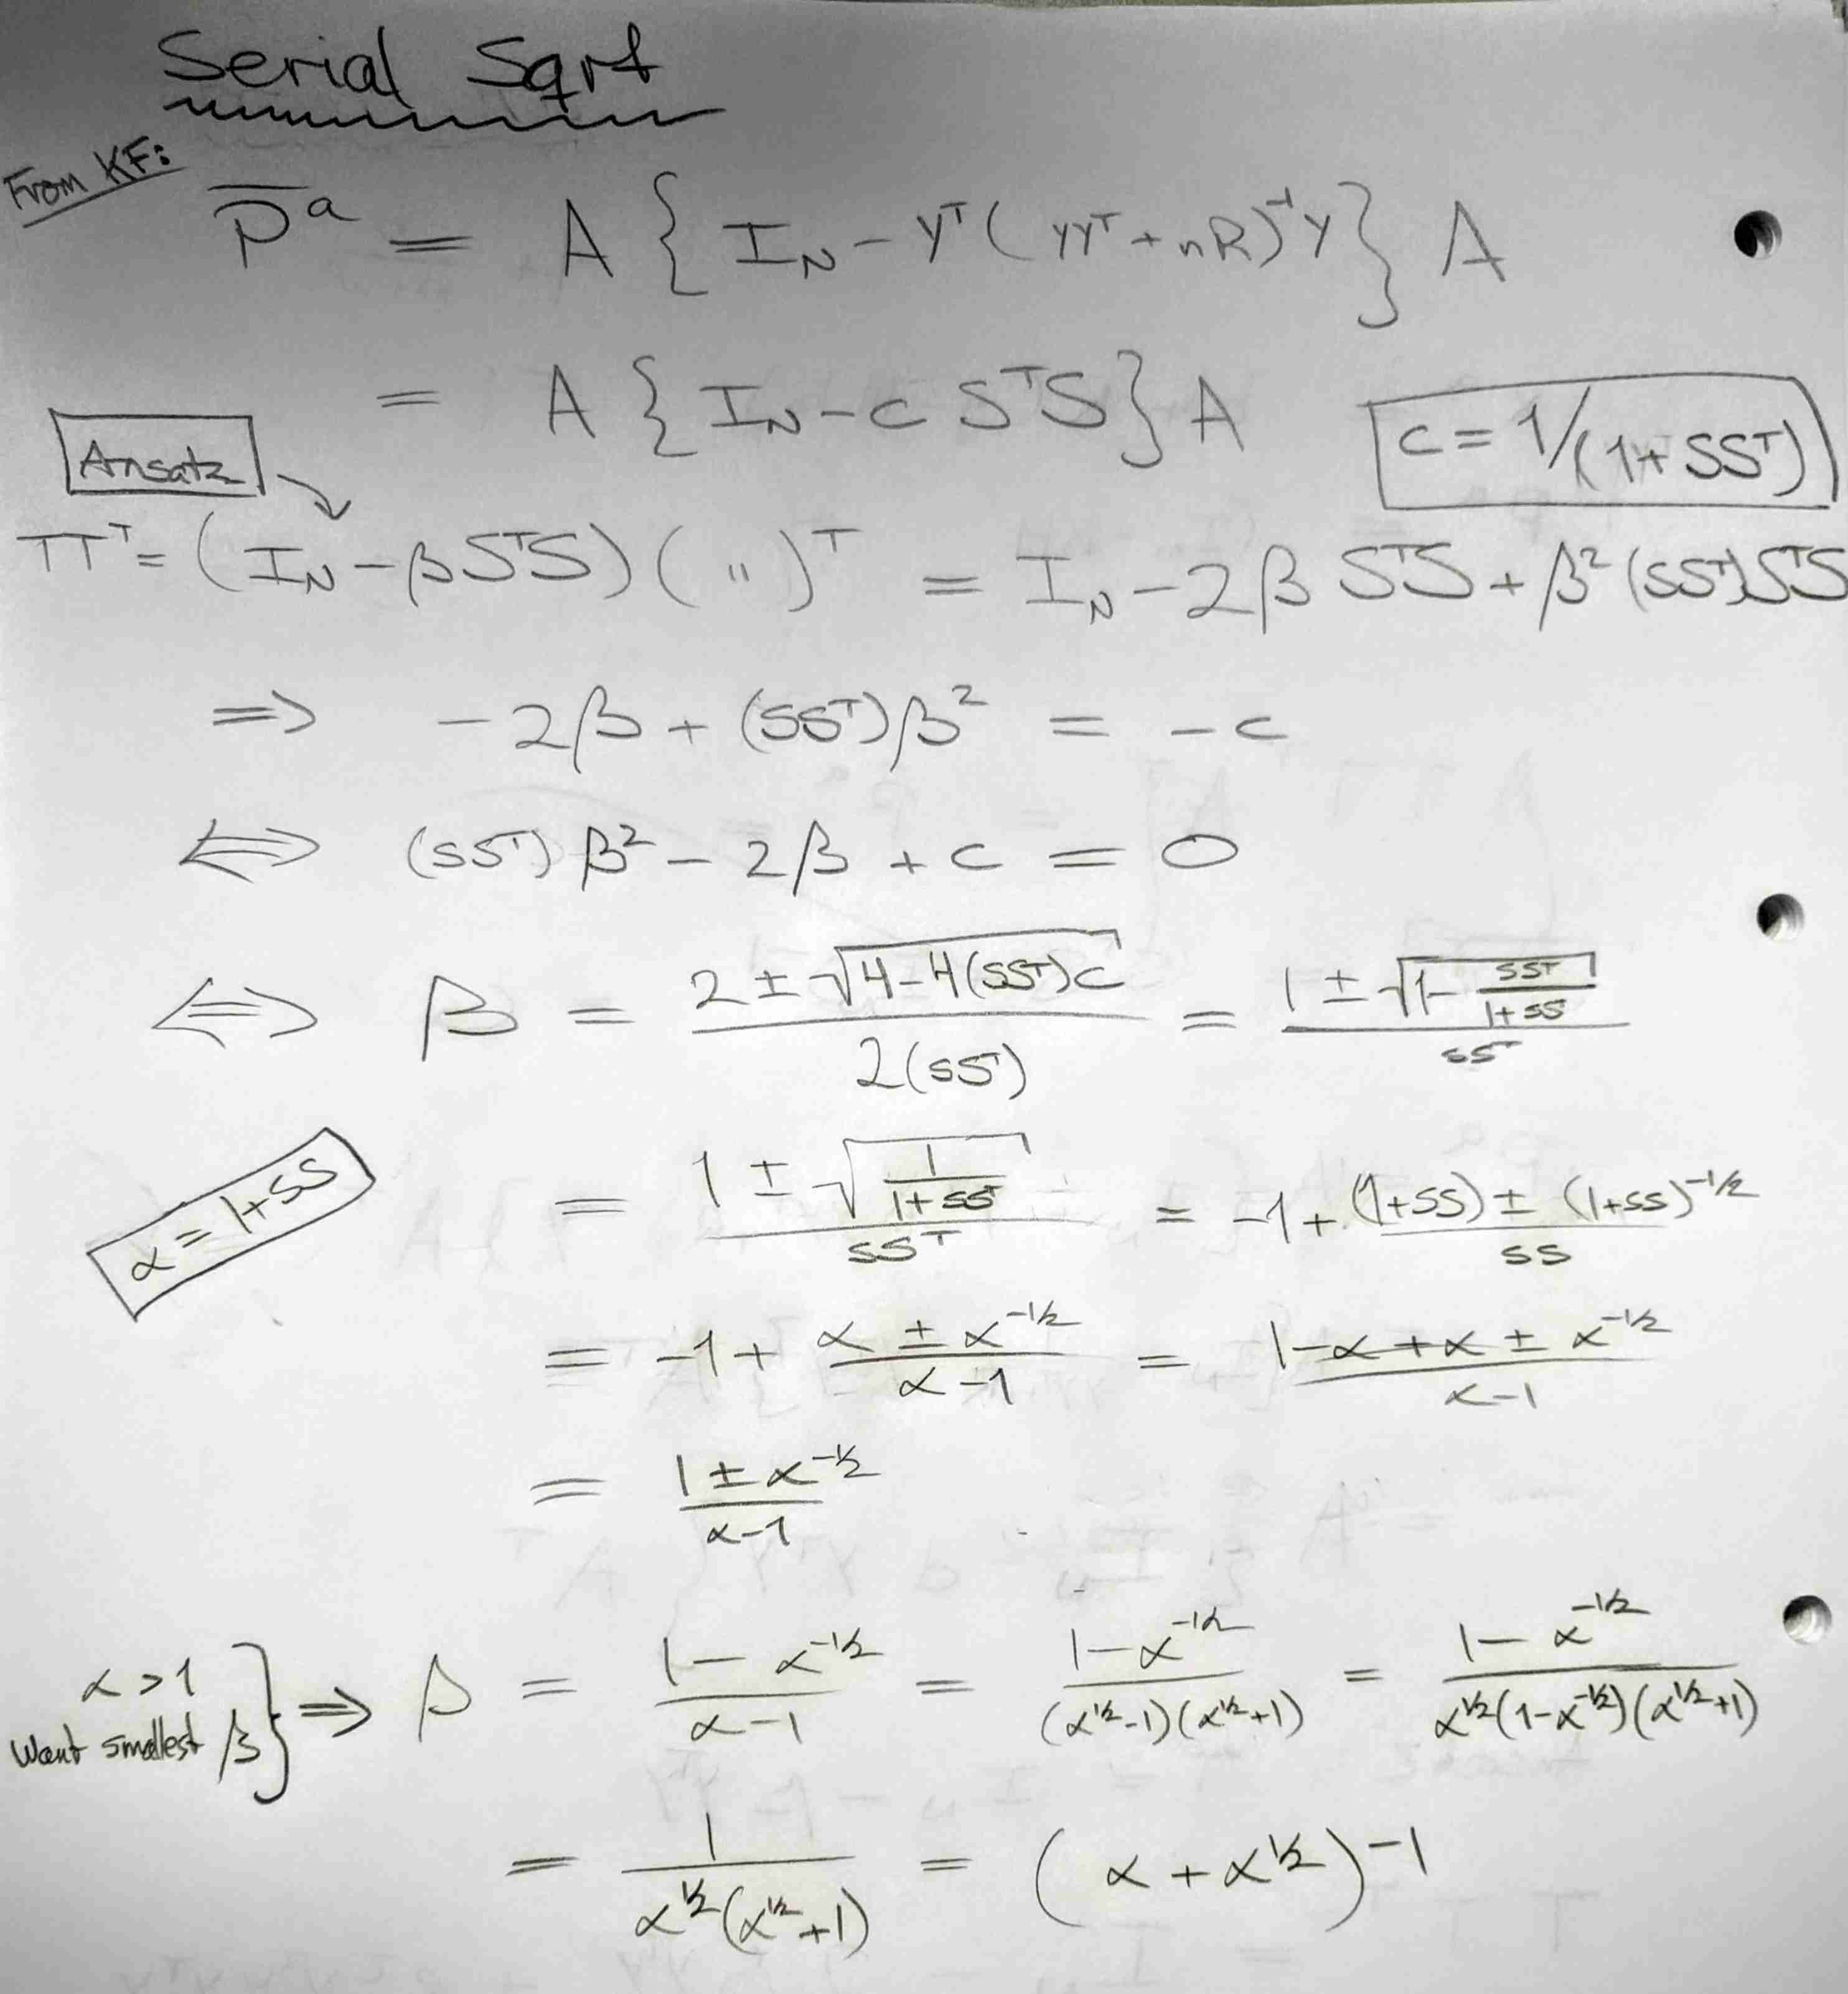 Serial Sqrt
From KF:
P̅ᵃ = A { I_N − Yᵀ( YYᵀ + nR)⁻¹Y } A
= A { I_N − c SᵀS } A
c = 1/(1+ SSᵀ)
Ansatz
TTᵀ = (I_N − βSᵀS) ( " )ᵀ = I_N − 2β SᵀS + β² (SSᵀ)SᵀS
⇒ −2β + (SSᵀ)β² = −c
⇔ (SSᵀ) β² − 2β + c = 0
⇔ β = (2 ± √(4−4(SSᵀ)c)) / (2(SSᵀ)) = (1 ± √(1− SSᵀ/(1+SS))) / SSᵀ
α = 1+SS
= (1 ± √(1/(1+SSᵀ))) / SSᵀ = −1 + ((1+SS) ± (1+SS)^(−1/2)) / SS
= −1 + (α ± α^(−1/2)) / (α−1) = (1−α+α ± α^(−1/2)) / (α−1)
= (1 ± α^(−1/2)) / (α−1)
α > 1
Want smallest β
} ⇒ β = (1 − α^(−1/2)) / (α−1) = (1−α^(−1/2)) / ((α^(1/2)−1)(α^(1/2)+1)) = (1− α^(−1/2)) / (α^(1/2)(1−α^(−1/2))(α^(1/2)+1))
= 1 / (α^(1/2)(α^(1/2)+1)) = (α + α^(1/2))⁻¹